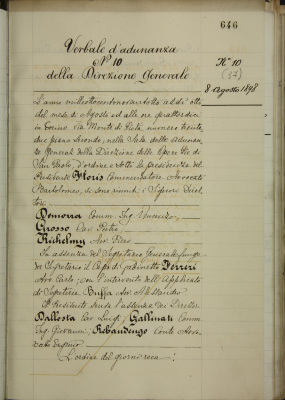 646
Verbale d'adunanza
N° 10
della Direzione Generale
N.° 10
(37)
8 Agosto 1898
L'anno milleottocentonovantotto addì otto
del mese di Agosto ed alle ore quattordici
in Torino, via Monte di Pietà, numero trenta,
due piano secondo, nella Sala delle adunan,
ze Generali della Direzione delle Opere Pie di
San Paolo, d'ordine e sotto la presidenza del
Presidente Floris Commendatore Avvocato
Bartolomeo, si sono riuniti i Signori Diret,
tori
Demorra Comm. Ing.
Grosso Cav. Pietro
Richelmy Avv. Piero
In assenza del Segretario Generale funge
da Segretario il Capo di Gabinetto Ferreri
Avv. Carlo; con l'intervento dell'Applicato
di Segreteria Buffa Avv.
Il Presidente scusa l'assenza dei Direttori
Dallosta Cav. Luigi, Gallinati Comm.
Ing. Giovanni, Rebaudengo Conte Avvo,
cato Eugenio
L'ordine del giorno reca: